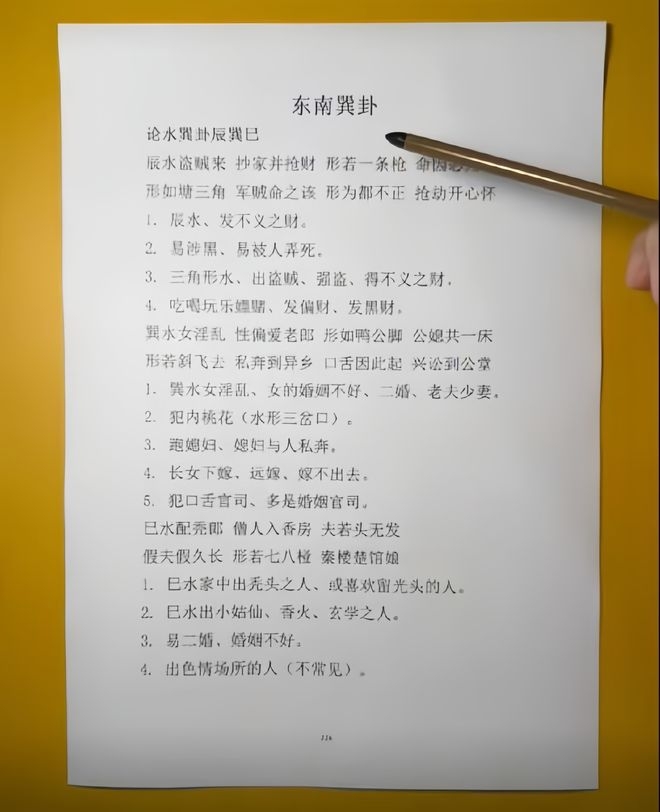 东南巽卦
论水巽卦辰巽巳
辰水盗贼来 抄家并抢财 形若一条枪
形如塘三角 军贼命之该 形为都不正 抢劫开心怀
1. 辰水、发不义之财。
2. 易涉黑、易被人弄死。
3. 三角形水、出盗贼、强盗、得不义之财。
4. 吃喝玩乐嫖赌、发偏财、发黑财。
巽水女淫乱 性偏爱老郎 形如鸭公脚 公媳共一床
形若斜飞去 私奔到异乡 口舌因此起 兴讼到公堂
1. 巽水女淫乱、女的婚姻不好、二婚、老夫少妻。
2. 犯内桃花（水形三岔口）。
3. 跑媳妇、媳妇与人私奔。
4. 长女下嫁、远嫁、嫁不出去。
5. 犯口舌官司、多是婚姻官司。
巳水配秃郎 僧人入香房 夫若头无发
假夫假久长 形若七八桠 秦楼楚馆娘
1. 巳水家中出秃头之人、或喜欢留光头的人。
2. 巳水出小姑仙、香火、玄学之人。
3. 易二婚，婚姻不好。
4. 出色情场所的人（不常见）。